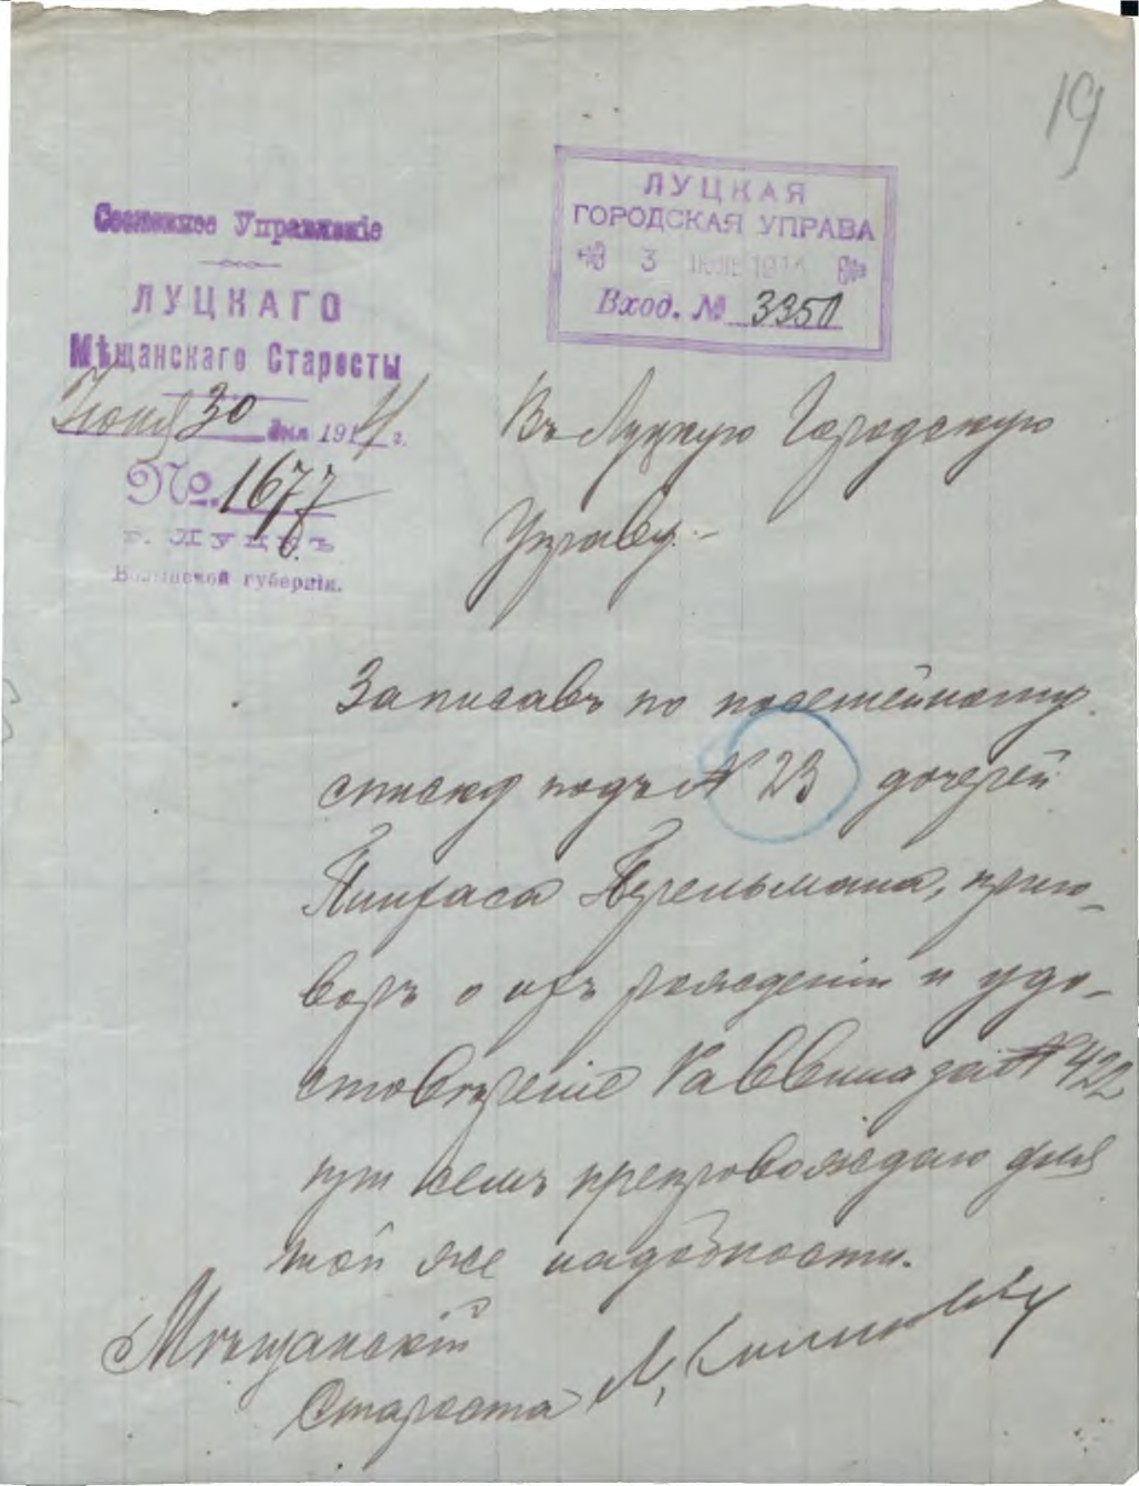 19
Сословное Управленіе
ЛУЦКАГО
Мѣщанскаго Старосты
Іюня 30 дня 1914 г.
№ 1677
г. Луцкъ
Волынской губерніи.
ЛУЦКАЯ
ГОРОДСКАЯ УПРАВА
3 ІЮЛ 1914
Вход. № 3350
Въ Луцкую Городскую
Управу.-
Записавъ по посемейному
списку подъ № 23 дочерей
Пинхаса Перельмана, приго-
воръ о ихъ рожденіи и удо-
стовѣреніе Раввина за № 422
при семъ препровождаю для
той же надобности.
Мѣщанскій
Староста